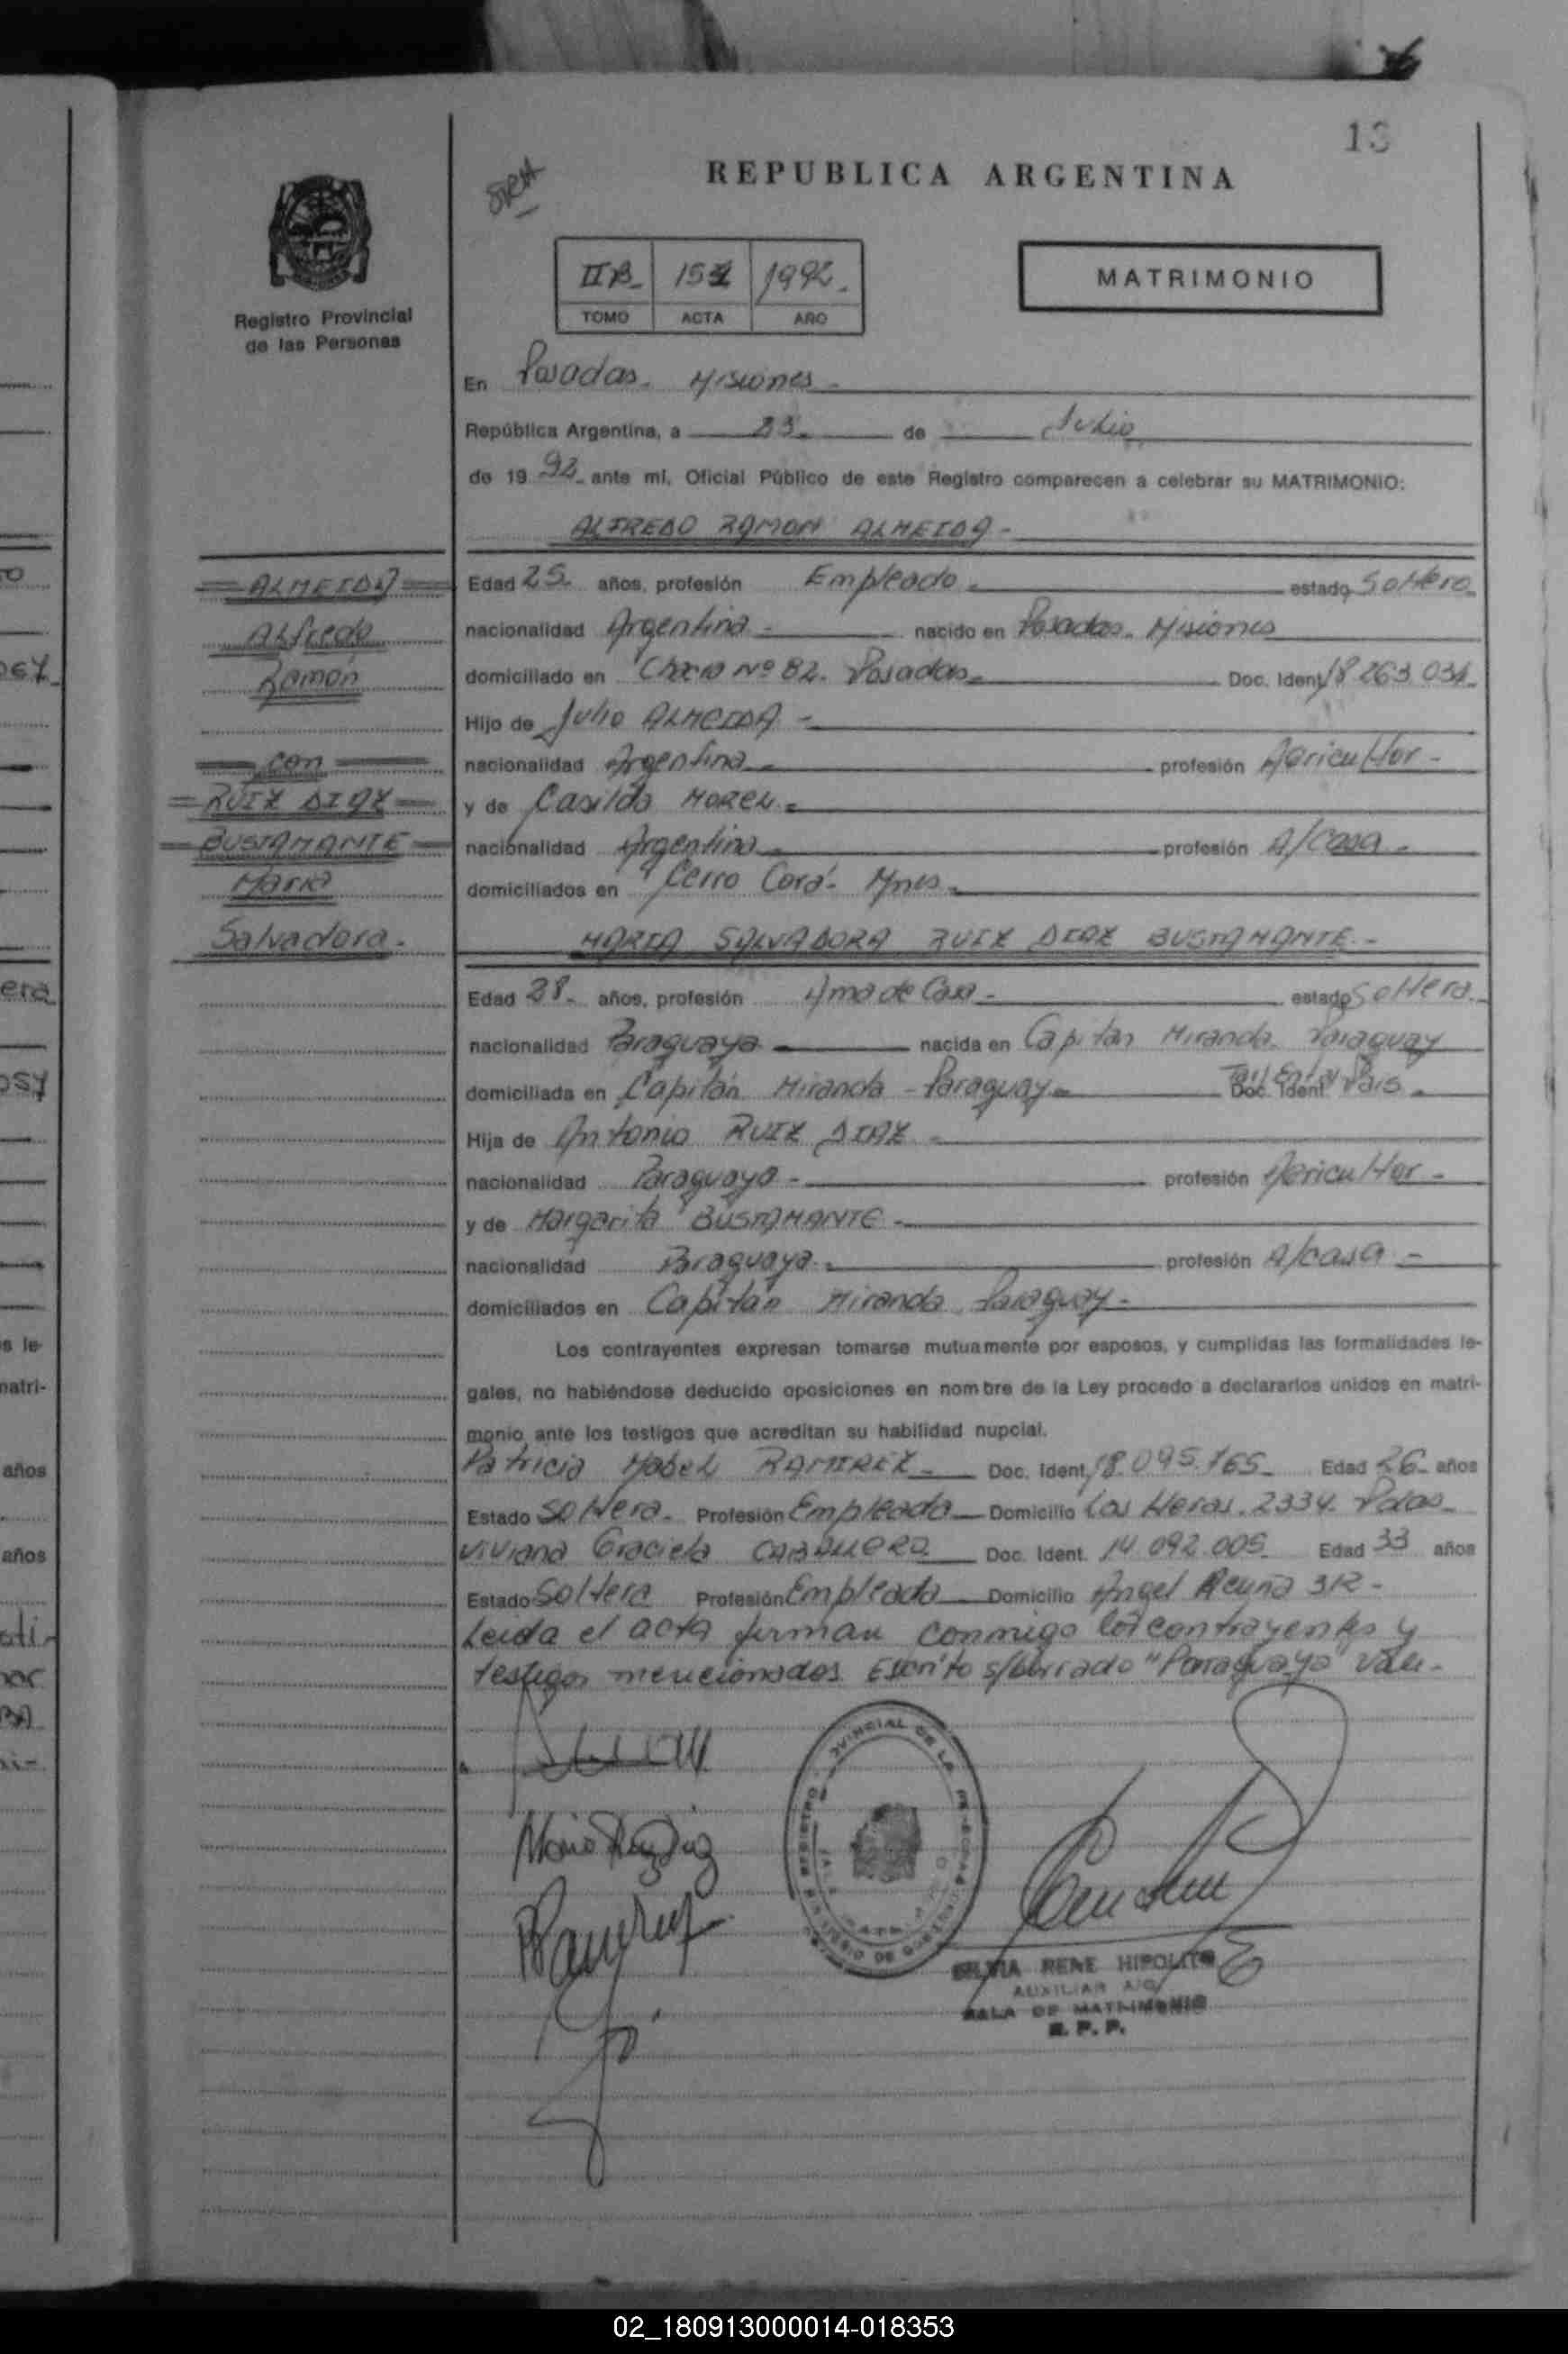 13
REPUBLICA ARGENTINA
IIB 1992.
TOMO ACTA AÑO
MATRIMONIO
Registro Provincial
de las Personas
En Posadas. Misiones
República Argentina, a 23 de Julio
de 1992 ante mí, Oficial Público de este Registro comparecen a celebrar su MATRIMONIO:
ALFREDO RAMON ALMEIDA
ALMEIDA
Alfredo
Ramón
con
RUIZ DIAZ
BUSTAMANTE
Maria
Salvadora.
Edad 25 años, profesión Empleado estado Soltero
nacionalidad Argentina nacido en Posadas. Misiones
domiciliado en Chacra Nº 82. Posadas Doc. Ident. 18.263.034
Hijo de Julio ALMEIDA
nacionalidad Argentina profesión Agricultor
y de Casilda MOREL
nacionalidad Argentina profesión A/casa
domiciliados en Cerro Corá. Mnes
MARIA SALVADORA RUIZ DIAZ BUSTAMANTE
Edad 28 años, profesión Ama de Casa estado Soltera
nacionalidad Paraguaya nacida en Capitán Miranda. Paraguay
domiciliada en Capitán Miranda - Paraguay Doc. Ident. País
Hija de Antonio RUIZ DIAZ
nacionalidad Paraguaya profesión Agricultor
y de Margarita BUSTAMANTE
nacionalidad Paraguaya profesión A/casa
domiciliados en Capitán Miranda Paraguay
Los contrayentes expresan tomarse mutuamente por esposos, y cumplidas las formalidades le-
gales, no habiéndose deducido oposiciones en nombre de la Ley procedo a declararlos unidos en matri-
monio ante los testigos que acreditan su habilidad nupcial.
Patricia Mabel RAMIREZ Doc. Ident. 18.095.765 Edad 26 años
Estado Soltera. Profesión Empleada Domicilio Las Heras. 2334. Pdas
Viviana Graciela CABALLERO Doc. Ident. 14.092.005 Edad 33 años
Estado Soltera Profesión Empleada Domicilio Angel Acuña 312
Leida el acta firman conmigo los contrayentes y
testigos mencionados. Escrito s/borrado "Paraguaya" Vale
Maria Ruiz Diaz
PRamirez
SILVIA RENE HIPOLITO
AUXILIAR
SALA DE MATRIMONIO
R. P. P.
02_180913000014-018353